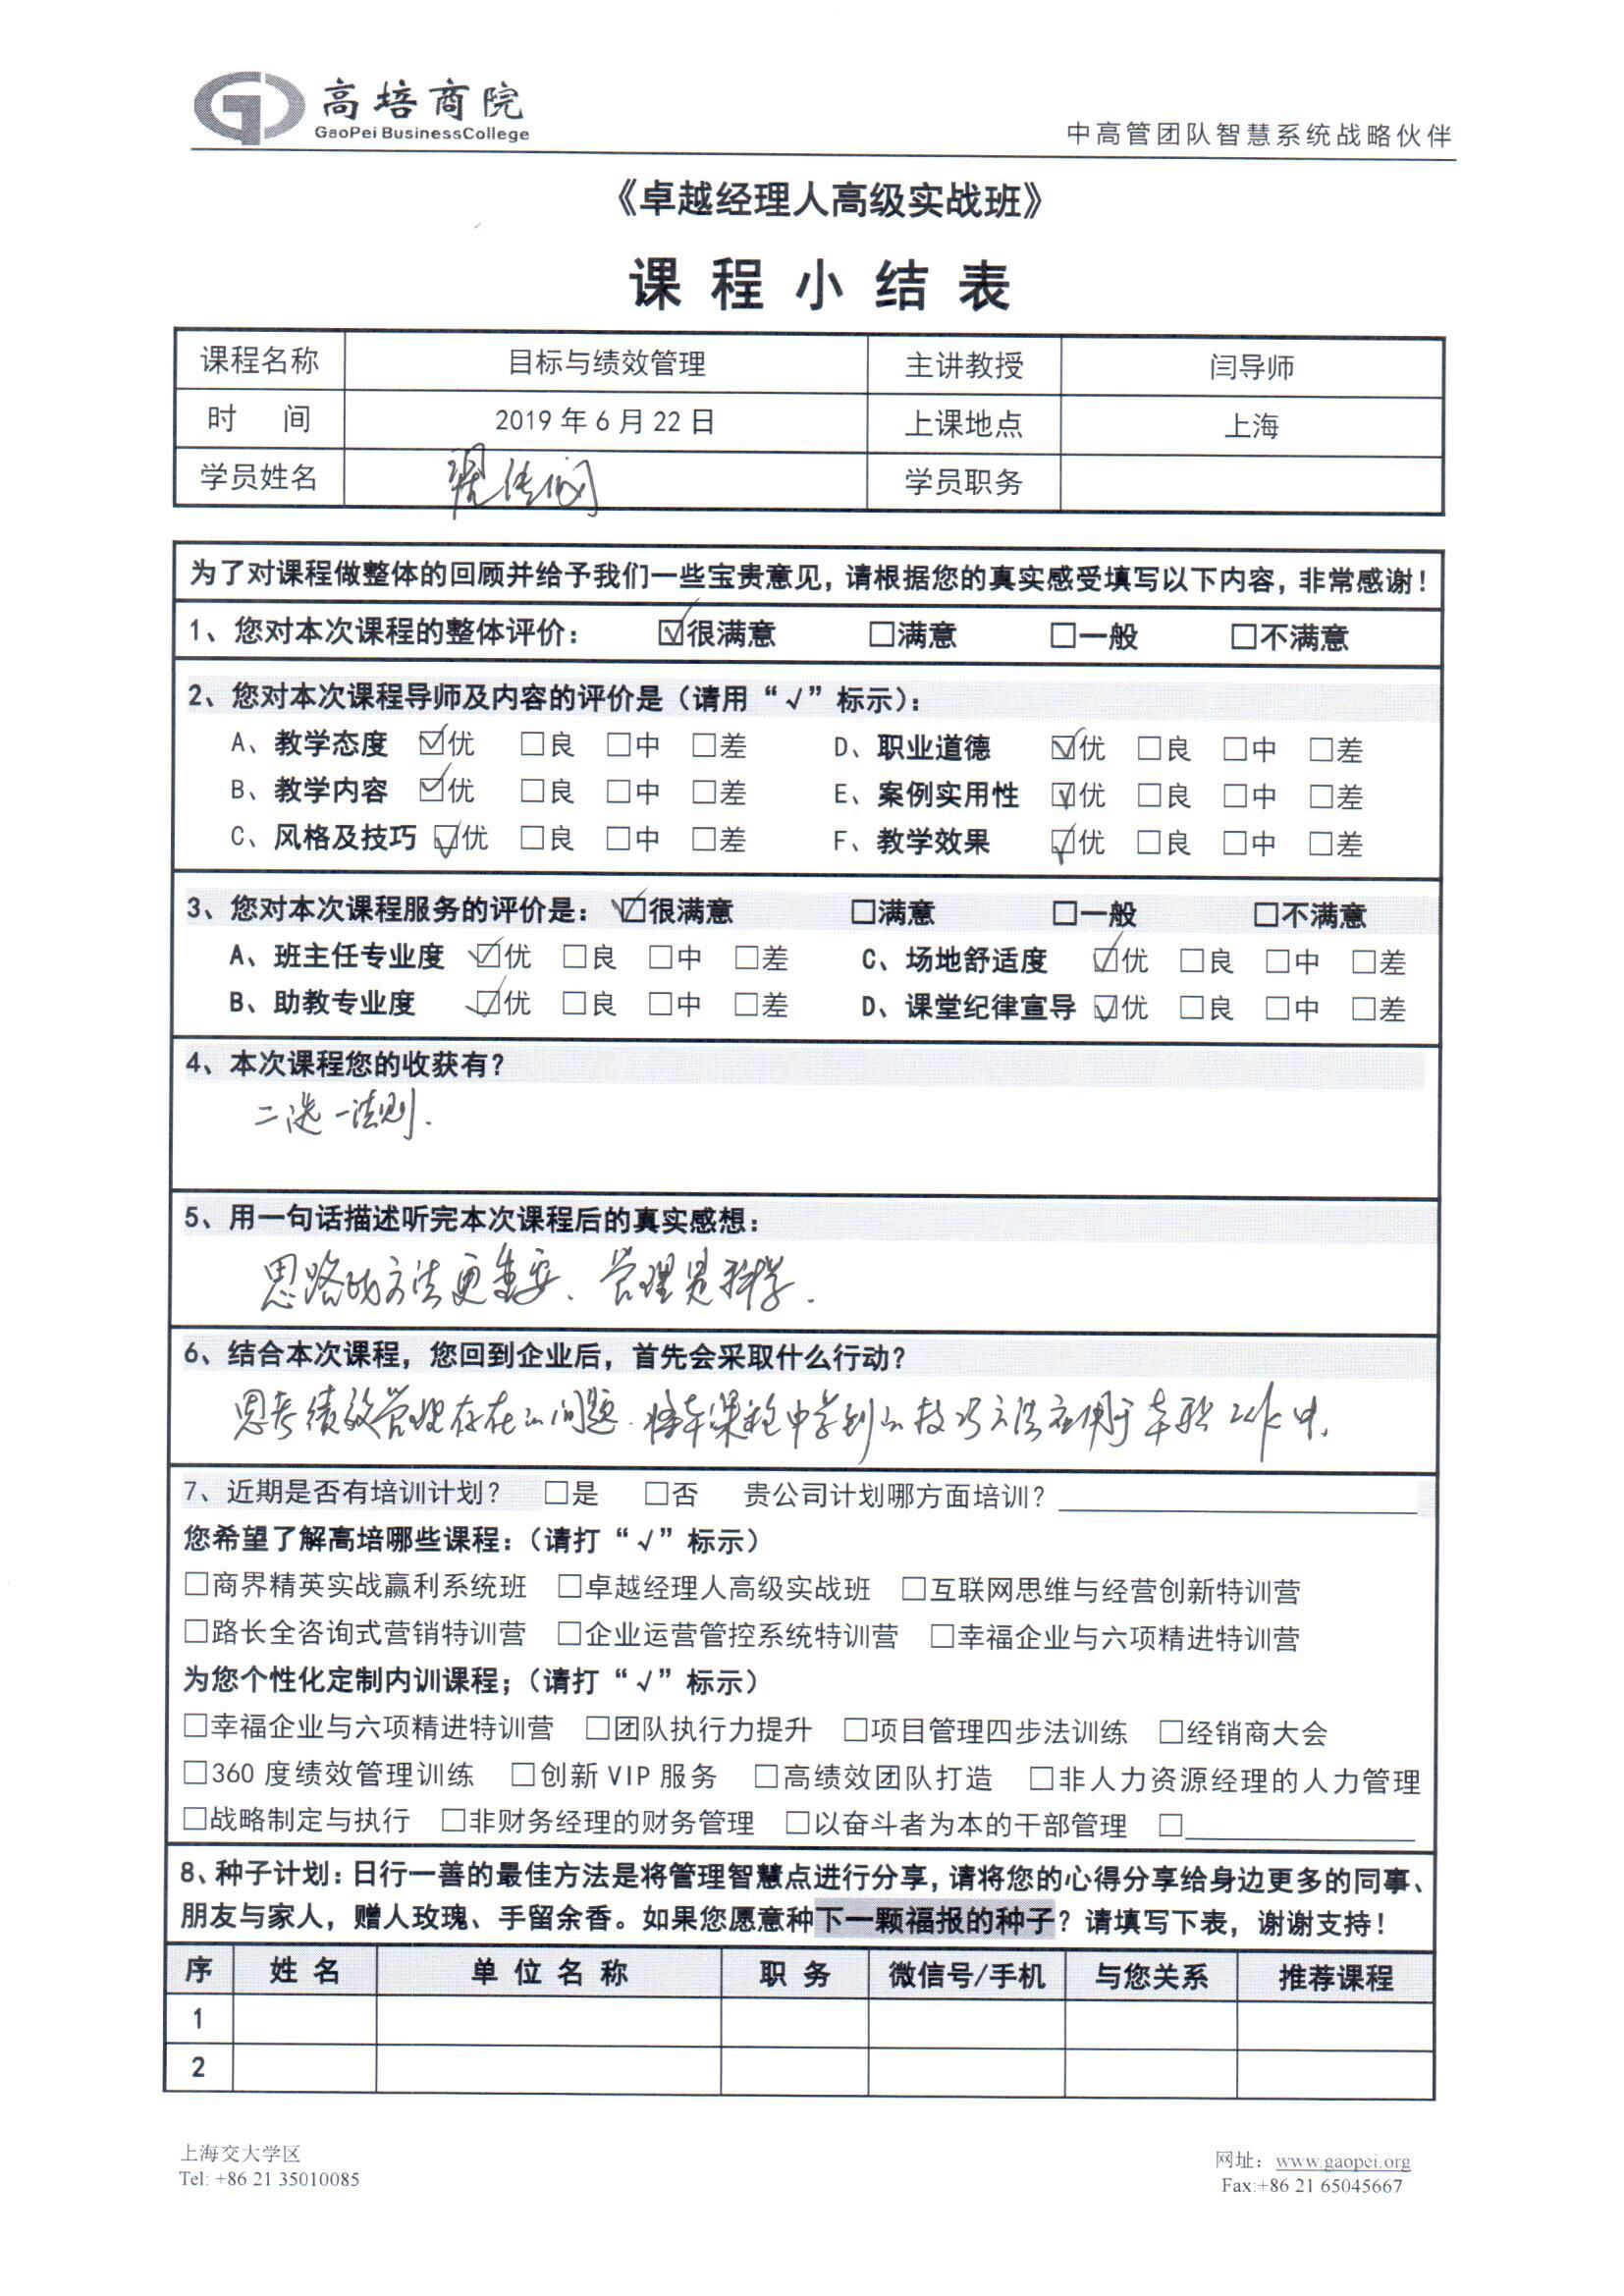 高培商院
GaoPei BusinessCollege
中高管团队智慧系统战略伙伴
《卓越经理人高级实战班》
课程小结表
课程名称 目标与绩效管理 主讲教授 闫导师
时 间 2019年6月22日 上课地点 上海
学员姓名 学员职务
为了对课程做整体的回顾并给予我们一些宝贵意见，请根据您的真实感受填写以下内容，非常感谢！
1、您对本次课程的整体评价： ☑很满意 □满意 □一般 □不满意
2、您对本次课程导师及内容的评价是（请用“√”标示）：
A、教学态度 ☑优 □良 □中 □差 D、职业道德 ☑优 □良 □中 □差
B、教学内容 ☑优 □良 □中 □差 E、案例实用性 ☑优 □良 □中 □差
C、风格及技巧 ☑优 □良 □中 □差 F、教学效果 ☑优 □良 □中 □差
3、您对本次课程服务的评价是： ☑很满意 □满意 □一般 □不满意
A、班主任专业度 ☑优 □良 □中 □差 C、场地舒适度 ☑优 □良 □中 □差
B、助教专业度 ☑优 □良 □中 □差 D、课堂纪律宣导 ☑优 □良 □中 □差
4、本次课程您的收获有？
二选一法则.
5、用一句话描述听完本次课程后的真实感想：
思路的方法更重要、管理是科学.
6、结合本次课程，您回到企业后，首先会采取什么行动？
思考绩效管理存在的问题.将本课程中学到的技巧方法应用于本职工作中.
7、近期是否有培训计划？ □是 □否 贵公司计划哪方面培训？
您希望了解高培哪些课程：（请打“√”标示）
□商界精英实战赢利系统班 □卓越经理人高级实战班 □互联网思维与经营创新特训营
□路长全咨询式营销特训营 □企业运营管控系统特训营 □幸福企业与六项精进特训营
为您个性化定制内训课程；（请打“√”标示）
□幸福企业与六项精进特训营 □团队执行力提升 □项目管理四步法训练 □经销商大会
□360度绩效管理训练 □创新VIP服务 □高绩效团队打造 □非人力资源经理的人力管理
□战略制定与执行 □非财务经理的财务管理 □以奋斗者为本的干部管理 □
8、种子计划：日行一善的最佳方法是将管理智慧点进行分享，请将您的心得分享给身边更多的同事、
朋友与家人，赠人玫瑰、手留余香。如果您愿意种下一颗福报的种子？请填写下表，谢谢支持！
序 姓名 单位名称 职务 微信号/手机 与您关系 推荐课程
1
2
上海交大学区
Tel: +86 21 35010085
网址：www.gaopei.org
Fax:+86 21 65045667